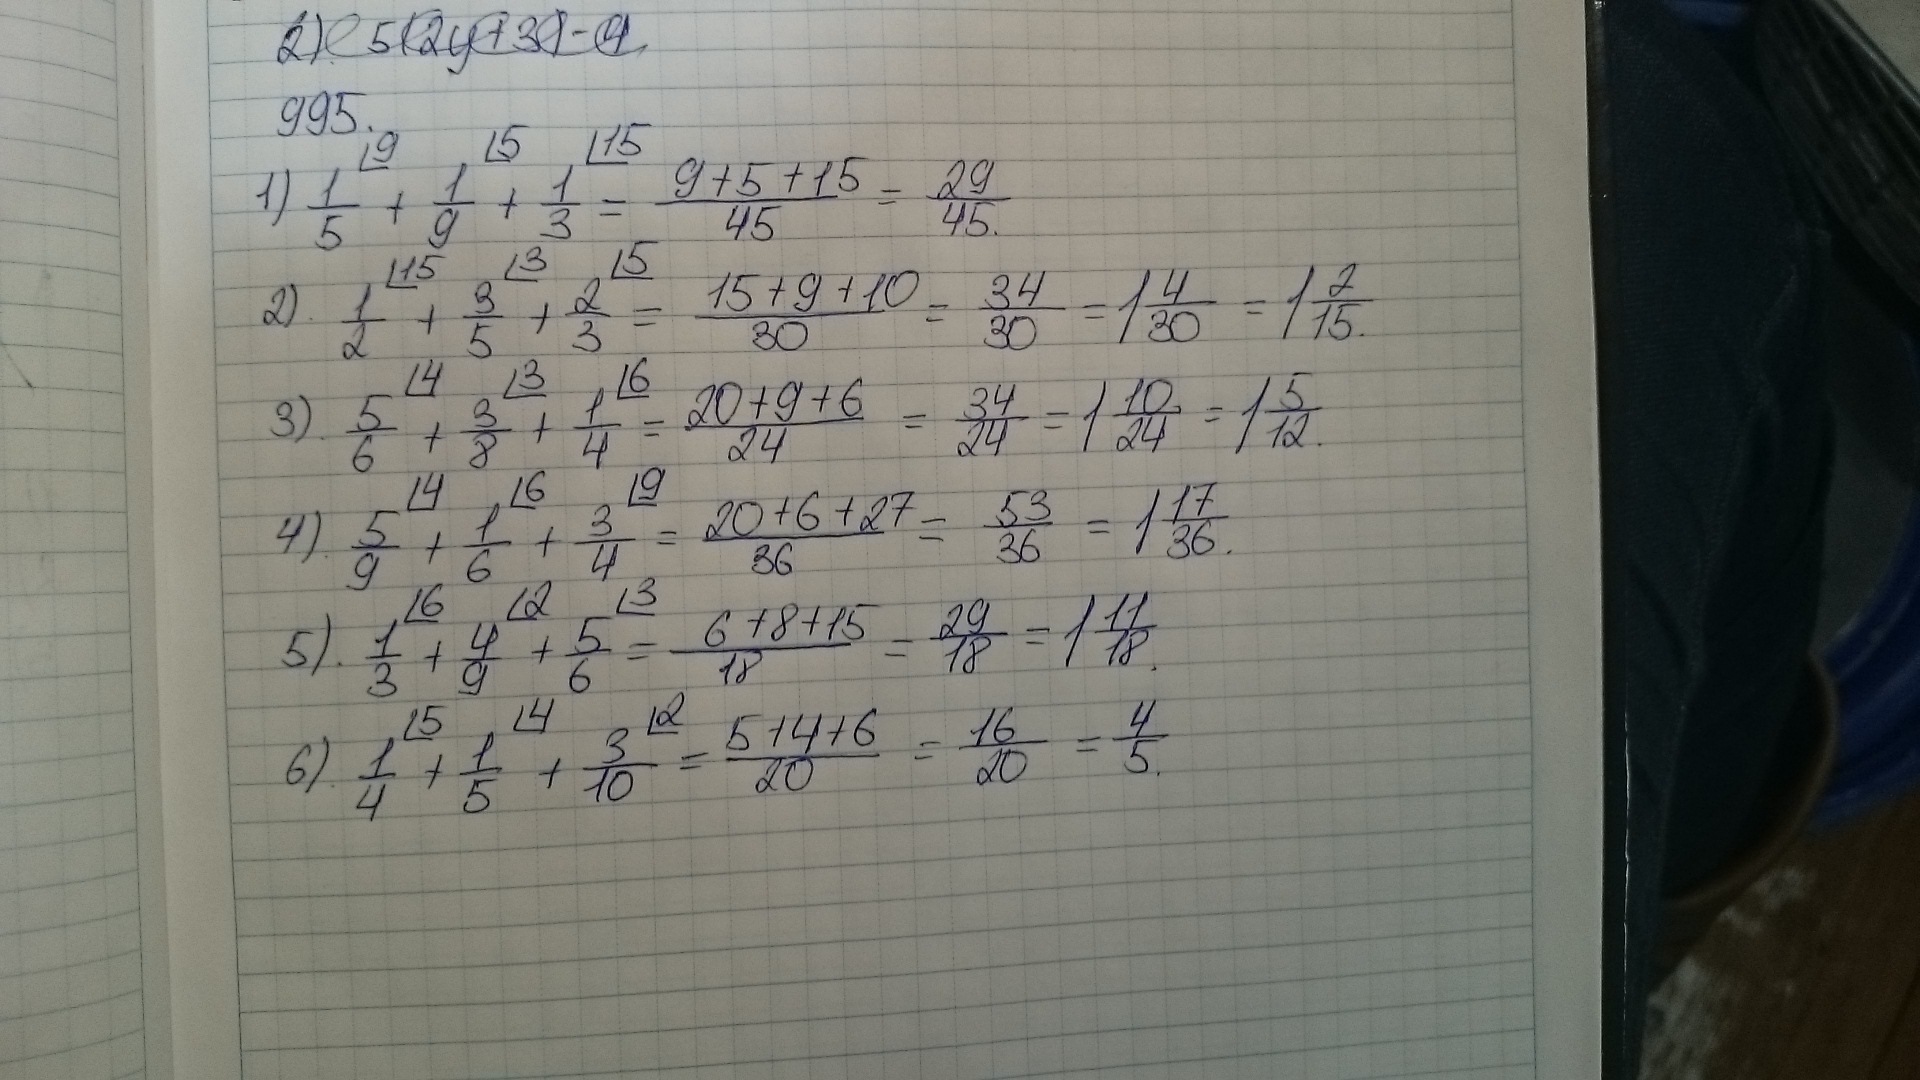 2) 5(2y+3)-4
995.
1) 1/5 ⌊9 + 1/9 ⌊5 + 1/3 ⌊15 = (9+5+15)/45 = 29/45.
2). 1/2 ⌊15 + 3/5 ⌊3 + 2/3 ⌊5 = (15+9+10)/30 = 34/30 = 1 4/30 = 1 2/15.
3). 5/6 ⌊4 + 3/8 ⌊3 + 1/4 ⌊6 = (20+9+6)/24 = 34/24 = 1 10/24 = 1 5/12.
4). 5/9 ⌊4 + 1/6 ⌊6 + 3/4 ⌊9 = (20+6+27)/36 = 53/36 = 1 17/36.
5). 1/3 ⌊6 + 4/9 ⌊2 + 5/6 ⌊3 = (6+8+15)/18 = 29/18 = 1 11/18.
6). 1/4 ⌊5 + 1/5 ⌊4 + 3/10 ⌊2 = (5+4+6)/20 = 16/20 = 4/5.